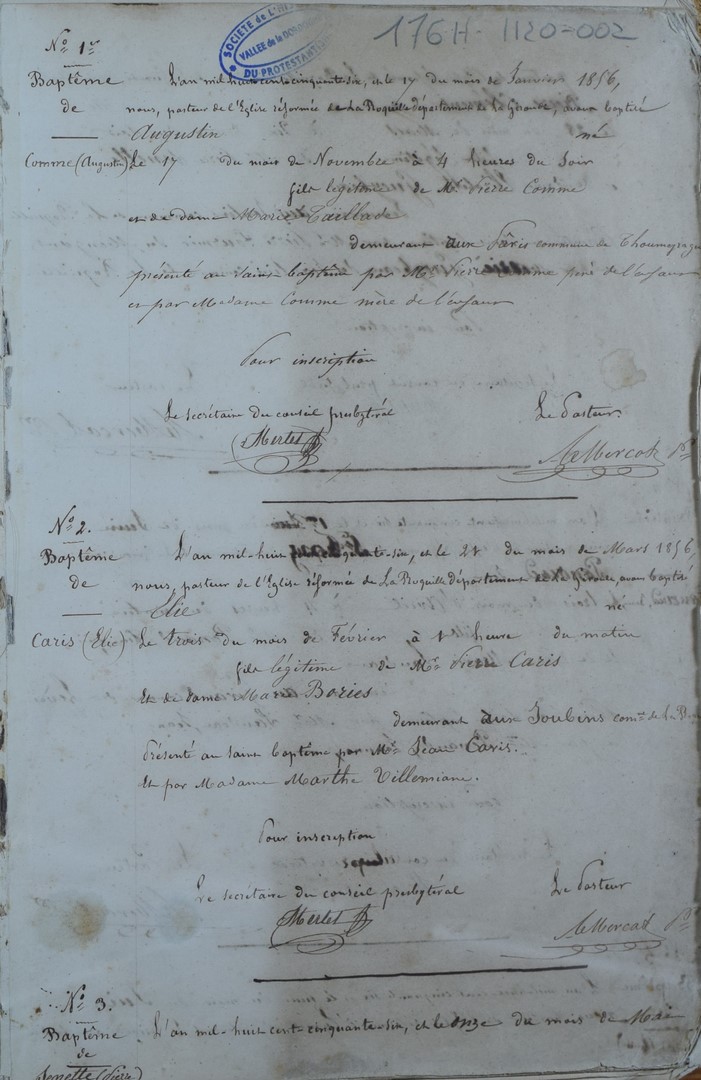 176H-1120-002
SOCIÉTÉ DE L'HIS
VALLÉE de la DORDOGNE
DU PROTESTANTISME
No. 1er
Baptême
de
Comme (Augustin)
L'an mil huit cent cinquante-six, et le 17 du mois de Janvier 1856,
nous, pasteur de l'Eglise réformée de La Roquille département de la Gironde, avons baptisé
Augustin né
Le 17 du mois de Novembre à 4 heures du Soir
fils légitime de Mr. Pierre Comme
et de dame Marie Taillade
demeurant aux Pâris commune de Thoumeyragu
présenté au saint baptême par Mr. Pierre Comme père de l'enfant
et par Madame Comme mère de l'enfant
Pour inscription
Le secrétaire du conseil presbytéral Le Pasteur
Merlet
No. 2.
Baptême
de
Caris (Elie)
L'an mil-huit cinquante-six, et le 21 du mois de Mars 1856,
nous, pasteur de l'Eglise réformée de La Roquille département de la Gironde, avons baptisé
Elie né
Le trois du mois de Février à 1 heure du matin
fils légitime de Mr. Pierre Caris
Et de dame Marie Bories
demeurant aux Joubins com. de la
Présenté au saint baptême par Mr. Jean Caris.
Et par Madame Marthe Villemiane.
Pour inscription
Le secrétaire du conseil presbytéral Le Pasteur
Merlet
No. 3.
Baptême
de
(Pierre)
L'an mil-huit cent-cinquante-six, et le onze du mois de Mai